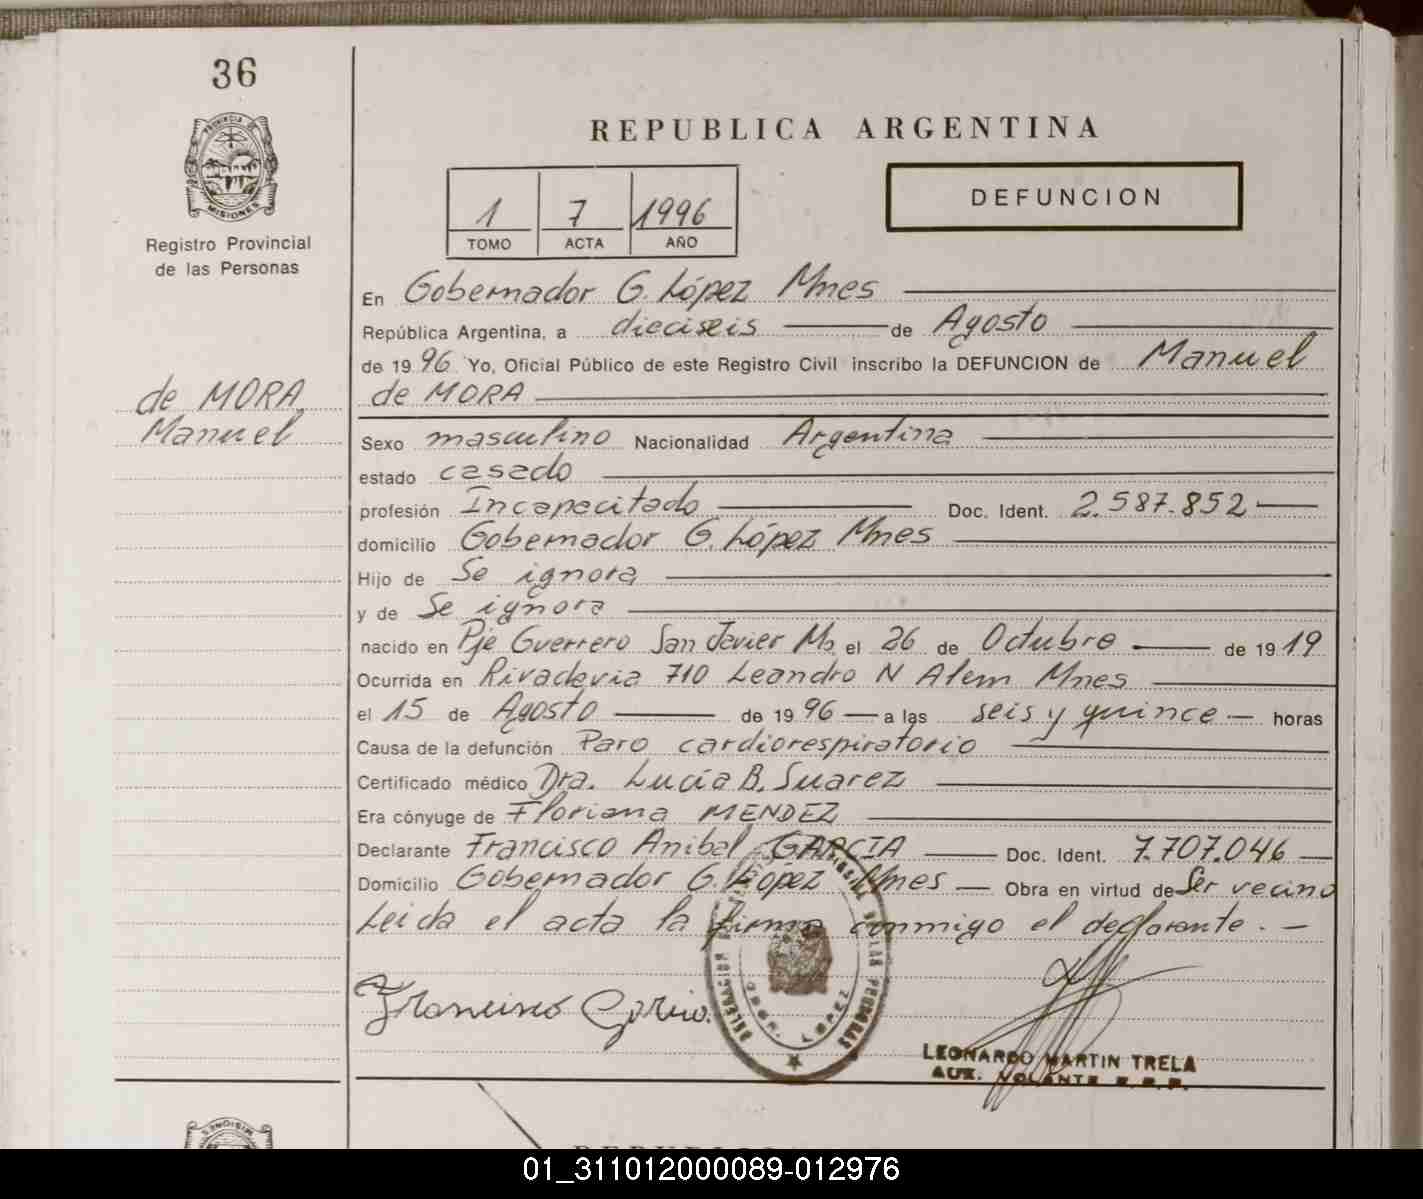 36
PROVINCIA DE
MISIONES
Registro Provincial
de las Personas
de MORA
Manuel
REPUBLICA ARGENTINA
1 7 1996
TOMO ACTA AÑO
DEFUNCION
En Gobernador G. López Mnes
República Argentina, a dieciseis de Agosto
de 19 96 Yo, Oficial Público de este Registro Civil inscribo la DEFUNCION de Manuel
de MORA
Sexo masculino Nacionalidad Argentina
estado casado
profesión Incapacitado Doc. Ident. 2.587.852
domicilio Gobernador G. López Mnes
Hijo de Se ignora
y de Se ignora
nacido en Pje Guerrero San Javier Ms el 26 de Octubre de 19 19
Ocurrida en Rivadavia 710 Leandro N Alem Mnes
el 15 de Agosto de 19 96 a las seis y quince horas
Causa de la defunción Paro cardiorespiratorio
Certificado médico Dra. Lucía B. Suarez
Era cónyuge de Floriana MENDEZ
Declarante Francisco Anibal GARCIA Doc. Ident. 7.707.046
Domicilio Gobernador G. López Mnes Obra en virtud de Ser vecino
Leida el acta la firma conmigo el declarante.
Francisco Garcia.
DELEGACION DE LAS PERSONAS
GBOR. LOPEZ
LEONARDO MARTIN TRELA
AUX. VOLANTE R.P.P.
MISIONES
01_311012000089-012976